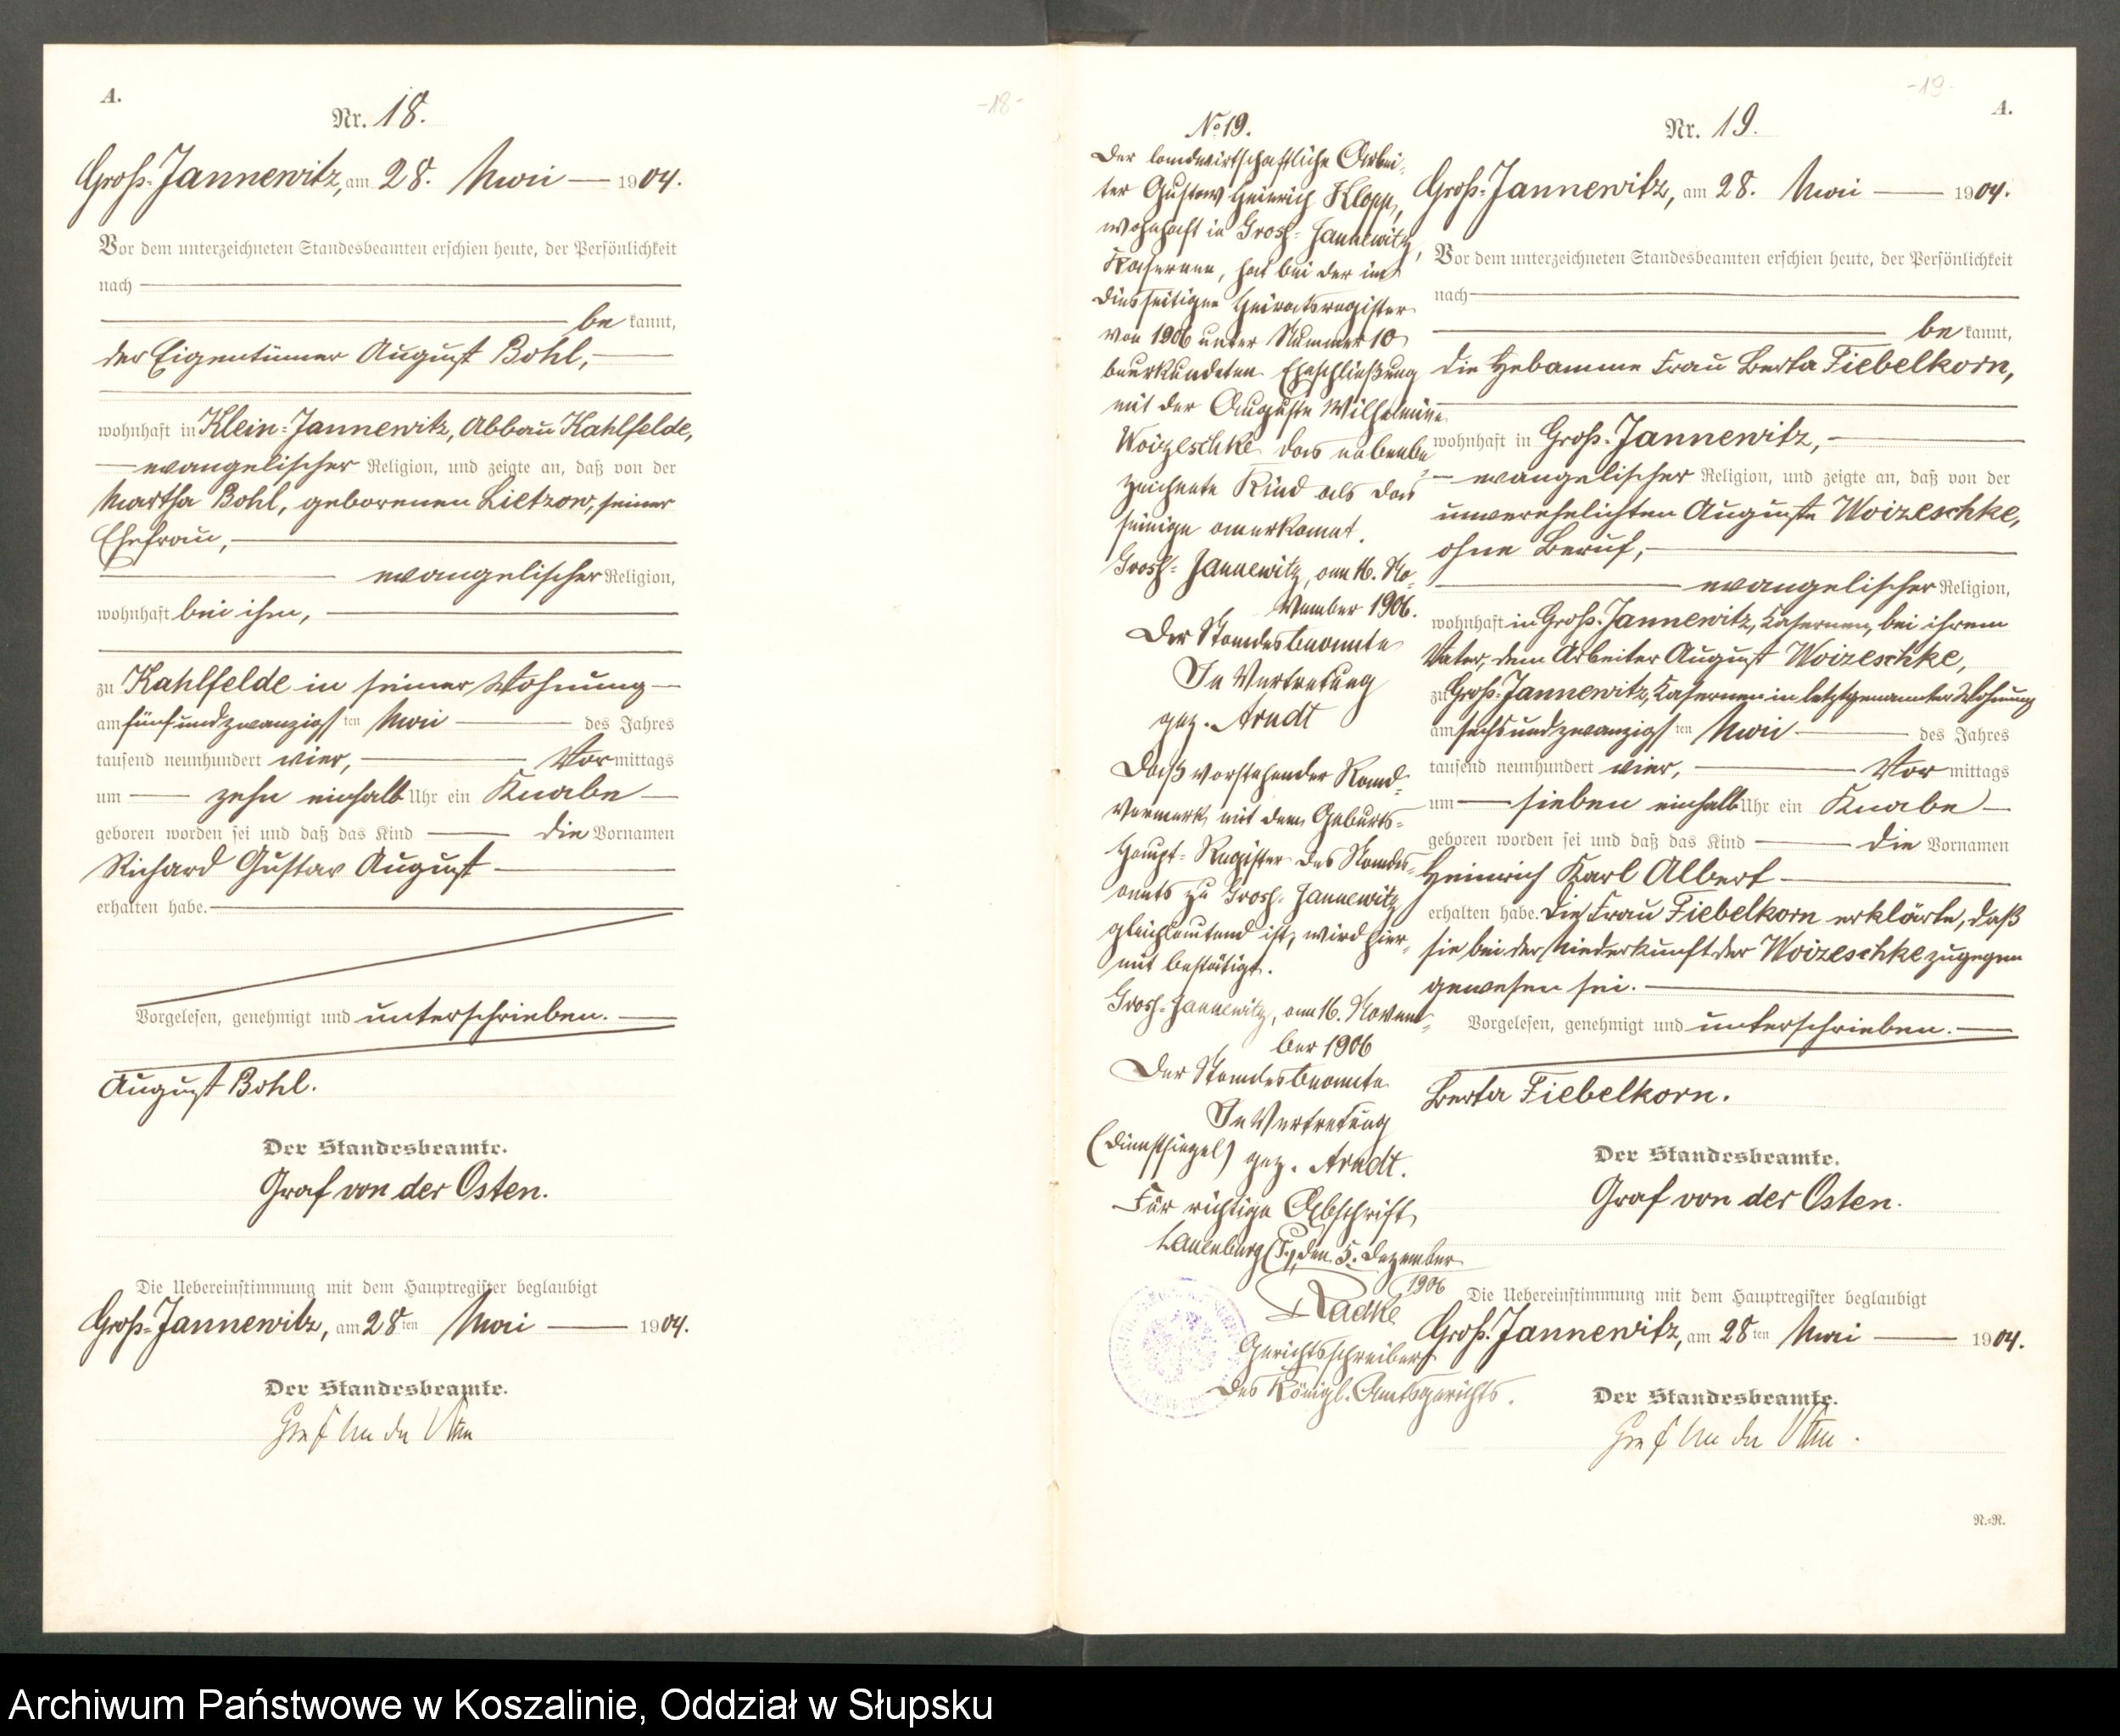 A.
Nr. 18.
-18-
Groß-Jannewitz, am 28. Mai 1904.
Vor dem unterzeichneten Standesbeamten erschien heute, der Persönlichkeit
nach
be kannt,
der Eigentümer August Bohl,
wohnhaft in Klein-Jannewitz, Abbau Kahlfelde,
evangelischer Religion, und zeigte an, daß von der
Martha Bohl, geborenen Lietzow, seiner
Ehefrau,
evangelischer Religion,
wohnhaft bei ihm,
zu Kahlfelde in seiner Wohnung
am fünfundzwanzigsten Mai des Jahres
tausend neunhundert vier, Vormittags
um zehn einhalb Uhr ein Knabe
geboren worden sei und daß das Kind die Vornamen
Richard Gustav August
erhalten habe.
Vorgelesen, genehmigt und unterschrieben.
August Bohl.
Der Standesbeamte.
Graf von der Osten.
Die Uebereinstimmung mit dem Hauptregister beglaubigt
Groß-Jannewitz, am 28ten Mai 1904.
Der Standesbeamte.
Graf von der Osten
No 19.
Der landwirtschaftliche Arbei-
ter Gustav Heinrich Klopp,
wohnhaft in Gross-Jannewitz,
Kasernen, hat bei der im
diesseitigen Heiratsregister
von 1906 unter Nummer 10
beurkundeten Eheschließung
mit der Auguste Wilhelmine
Woizeschke das nebenbe-
zeichnete Kind als das
seinige anerkannt.
Gross-Jannewitz, am 16. No-
vember 1906.
Der Standesbeamte
In Vertretung
gez. Arndt
Daß vorstehender Rand-
vermerk mit dem Geburts-
Haupt-Register des Standes-
amts zu Gross-Jannewitz
gleichlautend ist, wird hier-
mit bestätigt.
Gross-Jannewitz, am 16. Novem-
ber 1906
Der Standesbeamte
In Vertretung
(Dienstsiegel) gez. Arndt.
Für richtige Abschrift
Lauenburg P., den 5. Dezember
1906
Radke
Gerichtsschreiber
des Königl. Amtsgerichts.
-19-
A.
Nr. 19.
Groß-Jannewitz, am 28. Mai 1904.
Vor dem unterzeichneten Standesbeamten erschien heute, der Persönlichkeit
nach
be kannt,
die Hebamme Frau Berta Fiebelkorn,
wohnhaft in Groß-Jannewitz,
evangelischer Religion, und zeigte an, daß von der
unverehelichten Auguste Woizeschke,
ohne Beruf,
evangelischer Religion,
wohnhaft in Groß-Jannewitz, Kasernen, bei ihrem
Vater, dem Arbeiter August Woizeschke,
zu Groß-Jannewitz, Kasernen in letztgenannter Wohnung
am sechsundzwanzigsten Mai des Jahres
tausend neunhundert vier, Vormittags
um sieben einhalb Uhr ein Knabe
geboren worden sei und daß das Kind die Vornamen
Heinrich Karl Albert
erhalten habe. Die Frau Fiebelkorn erklärte, daß
sie bei der Niederkunft der Woizeschke zugegen
gewesen sei.
Vorgelesen, genehmigt und unterschrieben.
Berta Fiebelkorn.
Der Standesbeamte.
Graf von der Osten.
Die Uebereinstimmung mit dem Hauptregister beglaubigt
Groß-Jannewitz, am 28ten Mai 1904.
Der Standesbeamte.
Graf von der Osten.
N.-R.
Archiwum Państwowe w Koszalinie, Oddział w Słupsku